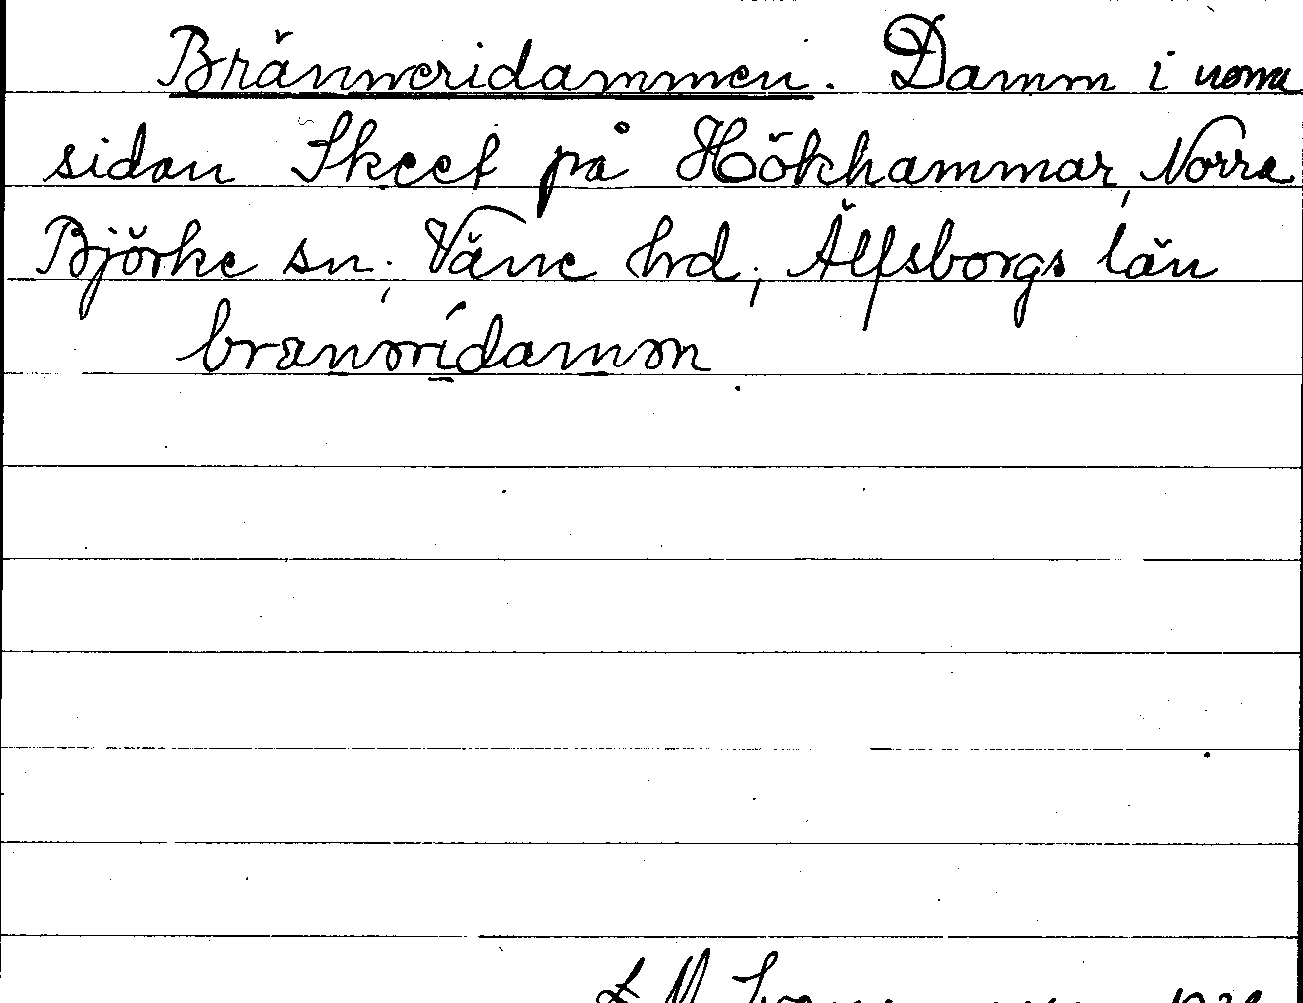 Bränneridammen. Damm i norra
sidan Skeet på Hökhammar, Norra
Björke sn, Väne hrd, Älfsborgs län